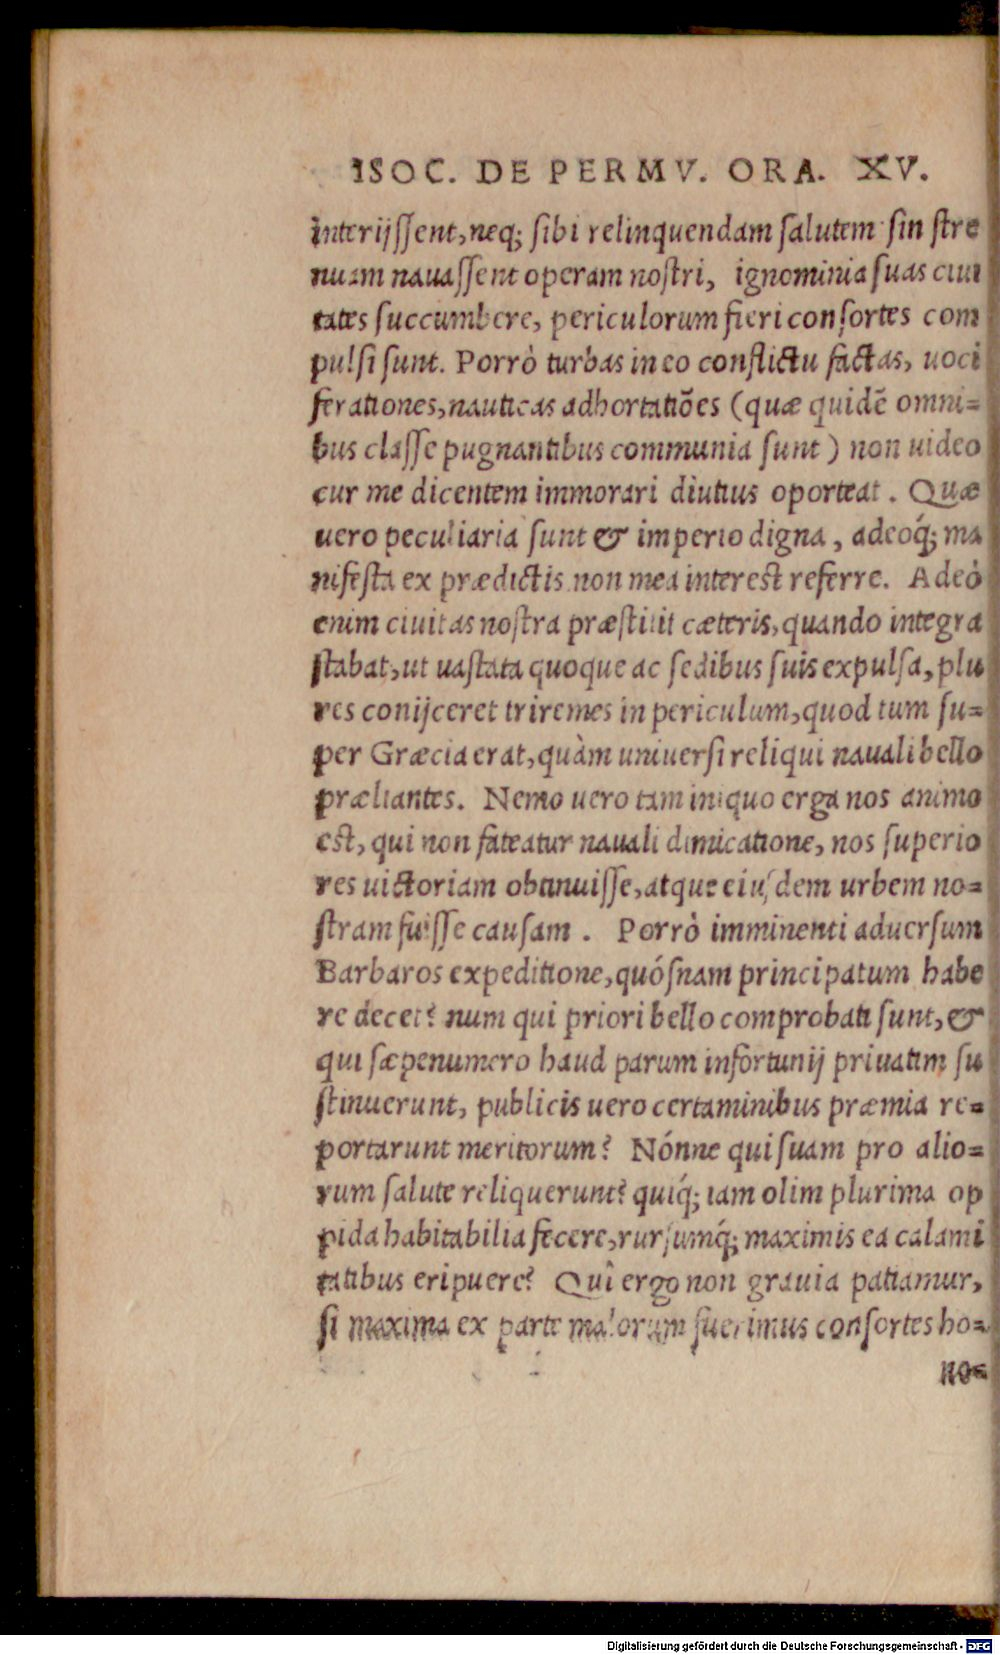 ISOC. DE PERMV. ORA. XV.
interijſſent, neq; ſibi relinquendam ſalutem ſin ſtre
nuam nauaſſent operam noſtri, ignominia ſuas ciui
tates ſuccumbere, periculorum fieri conſortes com
pulſi ſunt. Porrò turbas in eo conflictu factas, uoci
ferationes, nauticas adhortatiões (quæ quidē omni=
bus claſſe pugnantibus communia ſunt) non uideo
cur me dicentem immorari diutius oporteat. Quæ
uero peculiaria ſunt & imperio digna, adeoq́; ma
nifeſta ex prædictis non mea intereſt referre. Adeò
enim ciuitas noſtra præſtitit cæteris, quando integra
ſtabat, ut uaſtata quoque ac ſedibus ſuis expulſa, plu
res conijceret triremes in periculum, quod tum ſu=
per Græcia erat, quàm uniuerſi reliqui nauali bello
præliantes. Nemo uero tam iniquo erga nos animo
eſt, qui non fateatur nauali dimicatione, nos ſuperio
res uictoriam obtinuiſſe, atque eiuſdem urbem no=
ſtram fuiſſe cauſam. Porrò imminenti aduerſum
Barbaros expeditione, quóſnam principatum habe
re decet? num qui priori bello comprobati ſunt, &
qui ſæpenumero haud parum infortunij priuatim ſu
ſtinuerunt, publicis uero certaminibus præmia re=
portarunt meritorum? Nónne qui ſuam pro alio=
rum ſalute reliquerunt? quiq́; iam olim plurima op
pida habitabilia fecere, rurſumq́; maximis ea calami
tatibus eripuere? Quî ergo non grauia patiamur,
ſi maxima ex parte malorum fuerimus conſortes ho=
no=
Digitalisierung gefördert durch die Deutsche Forschungsgemeinschaft - DFG